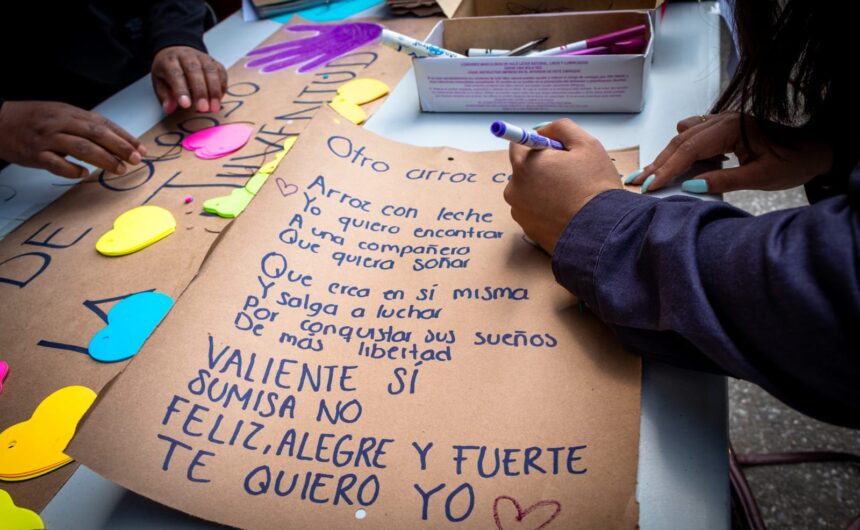 Otro arroz c
Arroz con leche
Yo quiero encontrar
A una compañero
Que quiera soñar
Que crea en sí misma
Y salga a luchar
Por conquistar sus sueños
De más libertad
VALIENTE SÍ
SUMISA NO
FELIZ, ALEGRE Y FUERTE
TE QUIERO YO
DE
LA
JUVENTUD